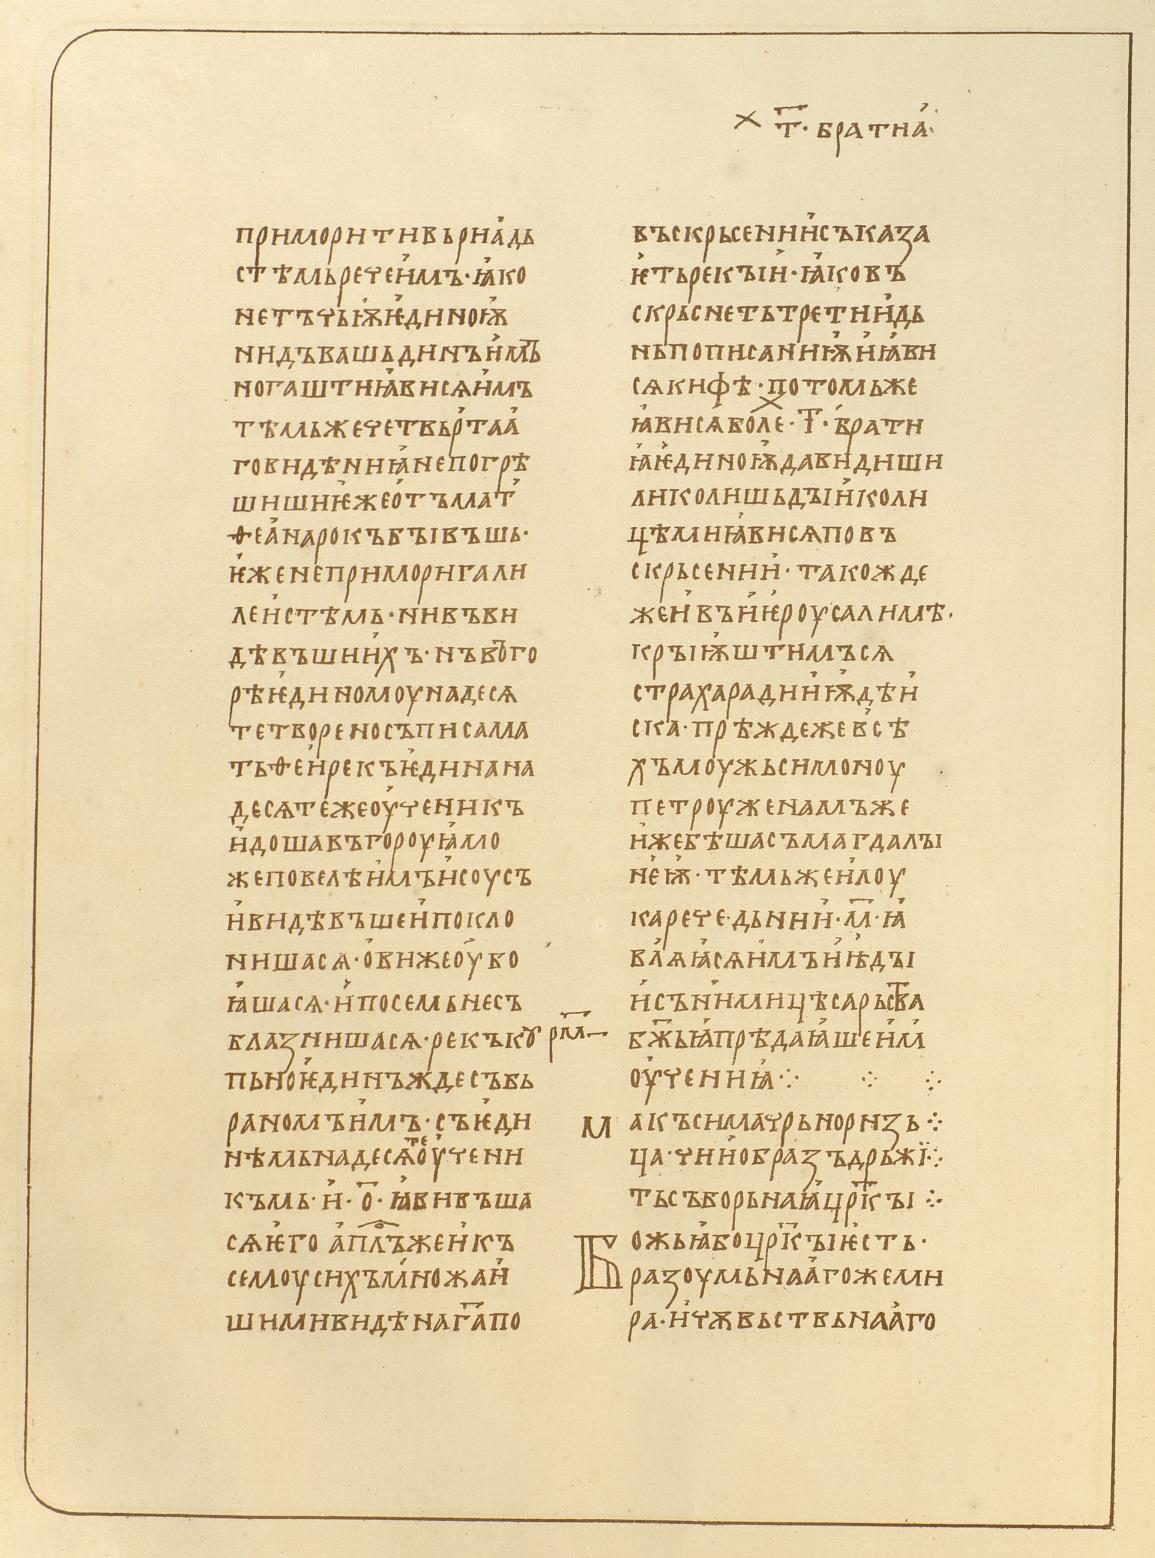 × т҃· братиꙗ·
приморитивьриадь
стѣмьречеимъ·ꙗко
нетъчьѭѥдиноѭ
нидъвашьдинъимъ
ногаштиꙗвисѧимъ
тѣмьжечетвьртаа
говидѣниꙗнепогрѣ
шишиѥжеотъмат
ѳеанарокъбꙑвъшь·
ѥженеприморигали
леистѣмь·нивъви
дѣвъшиихъ·нъвъгого
рѣѥдиномоунадесѧ
тетвореносъписама
тьѳеирекъѥдинана
десѧтежеоученикъ
идошавъгороуꙗмо
жеповелѣимъисоусъ
ивидѣвъшеипокло
нишасѧ·овижеоубо
ꙗшасѧ·ипосемьнесъ
блазнишасѧ·рекъкꙋ рм҃л
пьноѥдинъждесъвь
раномъимъ·съѥди
нѣмьнадесѧтеоучени
къмь·и·о҃·ꙗвивъша
сѧѥго ап҃лъжеикъ
семоусихъмножаи
шимивидѣнаг҃апо
въскрьсениисъказа
ѥтьрекꙑи·ꙗковъ
скрьснетьтретиидь
ньпописаниѭиꙗви
сѧкифѣ·потомьже
ꙗвисѧболе·т҃·брати
ꙗѥдиноѭдавидиши
ликолишьдꙑиколи
цѣмиꙗвисѧповъ
скрьсении·такожде
жеивъиѥроусалимѣ·
крꙑѭштимъсѧ
страхарадииѭдѣи
ска·прѣждежевсѣ
хъмоужьсимоноу
петроуженамъже
ижебѣшасъмагдалꙑ
неѭ·тѣмьжеилоу
карече·дьнии·м҃·ꙗ
влѧꙗсѧимъиѣдꙑ
исънимицѣсарьства
бж҃ьꙗпрѣдаꙗшеим
оучениꙗ⁘ ⁘ ⁘
макъсимачрьноризь⁘
ца·чиіобразъдрьжі⁘
тьсъборьнаꙗцрк҃ꙑ⁘
Божьꙗбоцрк҃ꙑѥсть·
разоумьнааго жеми
ра·ичѫвьствьнааго